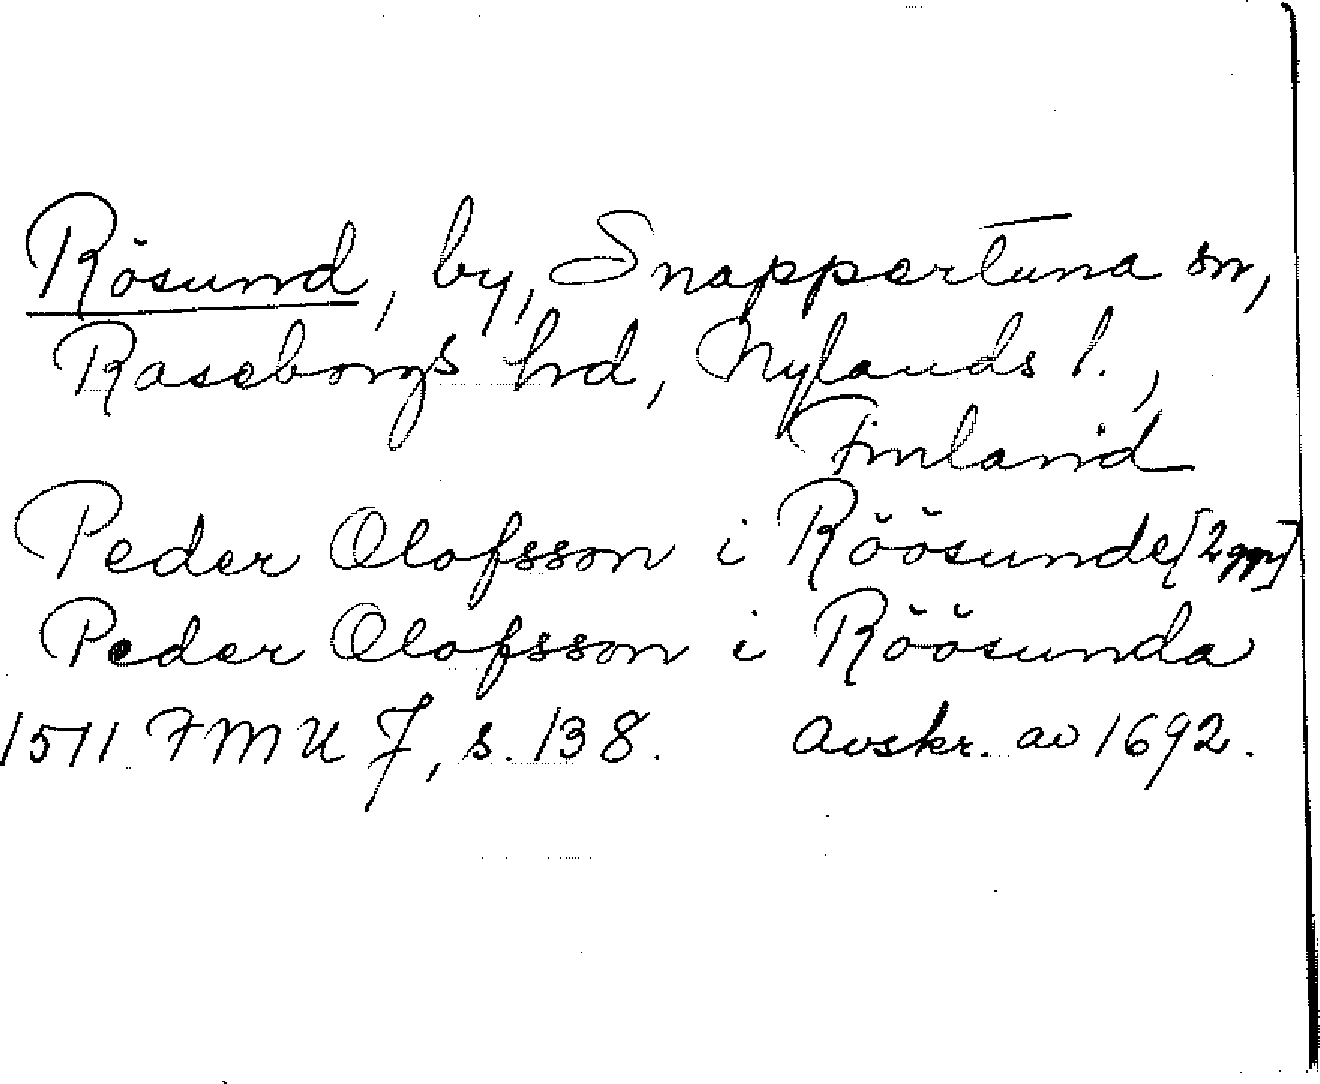 Rösund, by, Snappertuna sn,
Raseborgs hrd, Nylands l.,
Finland
Peder Olofsson i Röösunde [2 ggr]
Peder Olofsson i Röösunda
1511 FMU 7, s. 138. Avskr. av 1692.